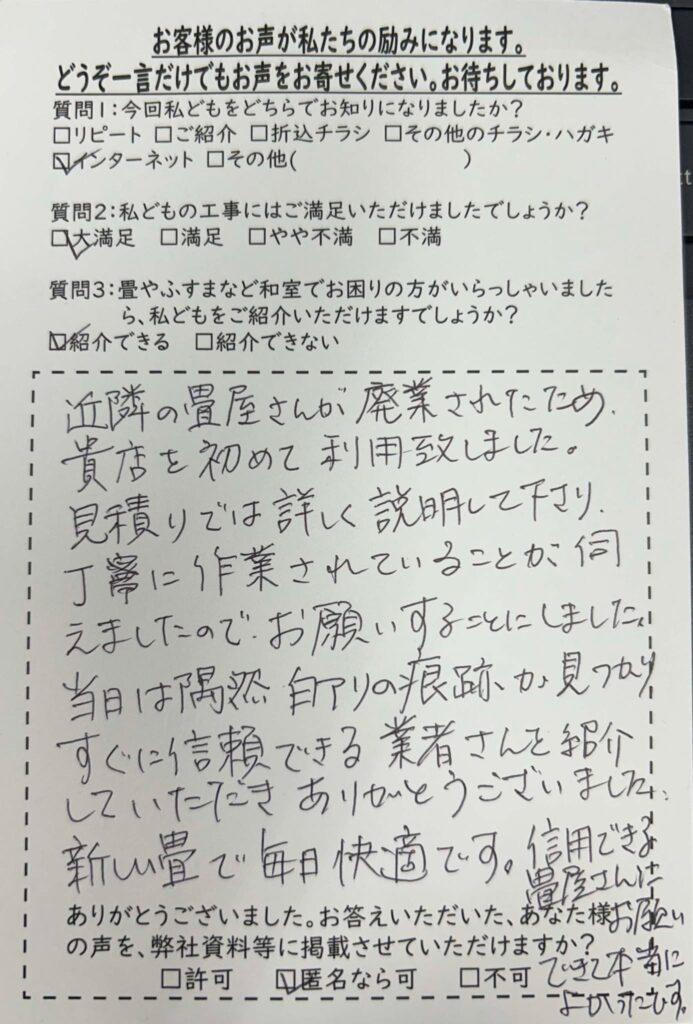 お客様のお声が私たちの励みになります。
どうぞ一言だけでもお声をお寄せください。お待ちしております。
質問1:今回私どもをどちらでお知りになりましたか?
□リピート □ご紹介 □折込チラシ □その他のチラシ・ハガキ
☑インターネット □その他( )
質問2:私どもの工事にはご満足いただけましたでしょうか?
☑大満足 □満足 □やや不満 □不満
質問3:畳やふすまなど和室でお困りの方がいらっしゃいました
ら、私どもをご紹介いただけますでしょうか?
☑紹介できる □紹介できない
近隣の畳屋さんが廃業されたため、
貴店を初めて利用致しました。
見積りでは詳しく説明して下さり、
丁寧に作業されていることが、伺
えましたので、お願いすることにしました。
当日は偶然白アリの痕跡が見つかり
すぐに信頼できる業者さんを紹介
していただきありがとうございました。
新しい畳で毎日快適です。信用できる
畳屋さんに
お願い
できて本当に
よかったです。
ありがとうございました。お答えいただいた、あなた様
の声を、弊社資料等に掲載させていただけますか?
□許可 ☑匿名なら可 □不可